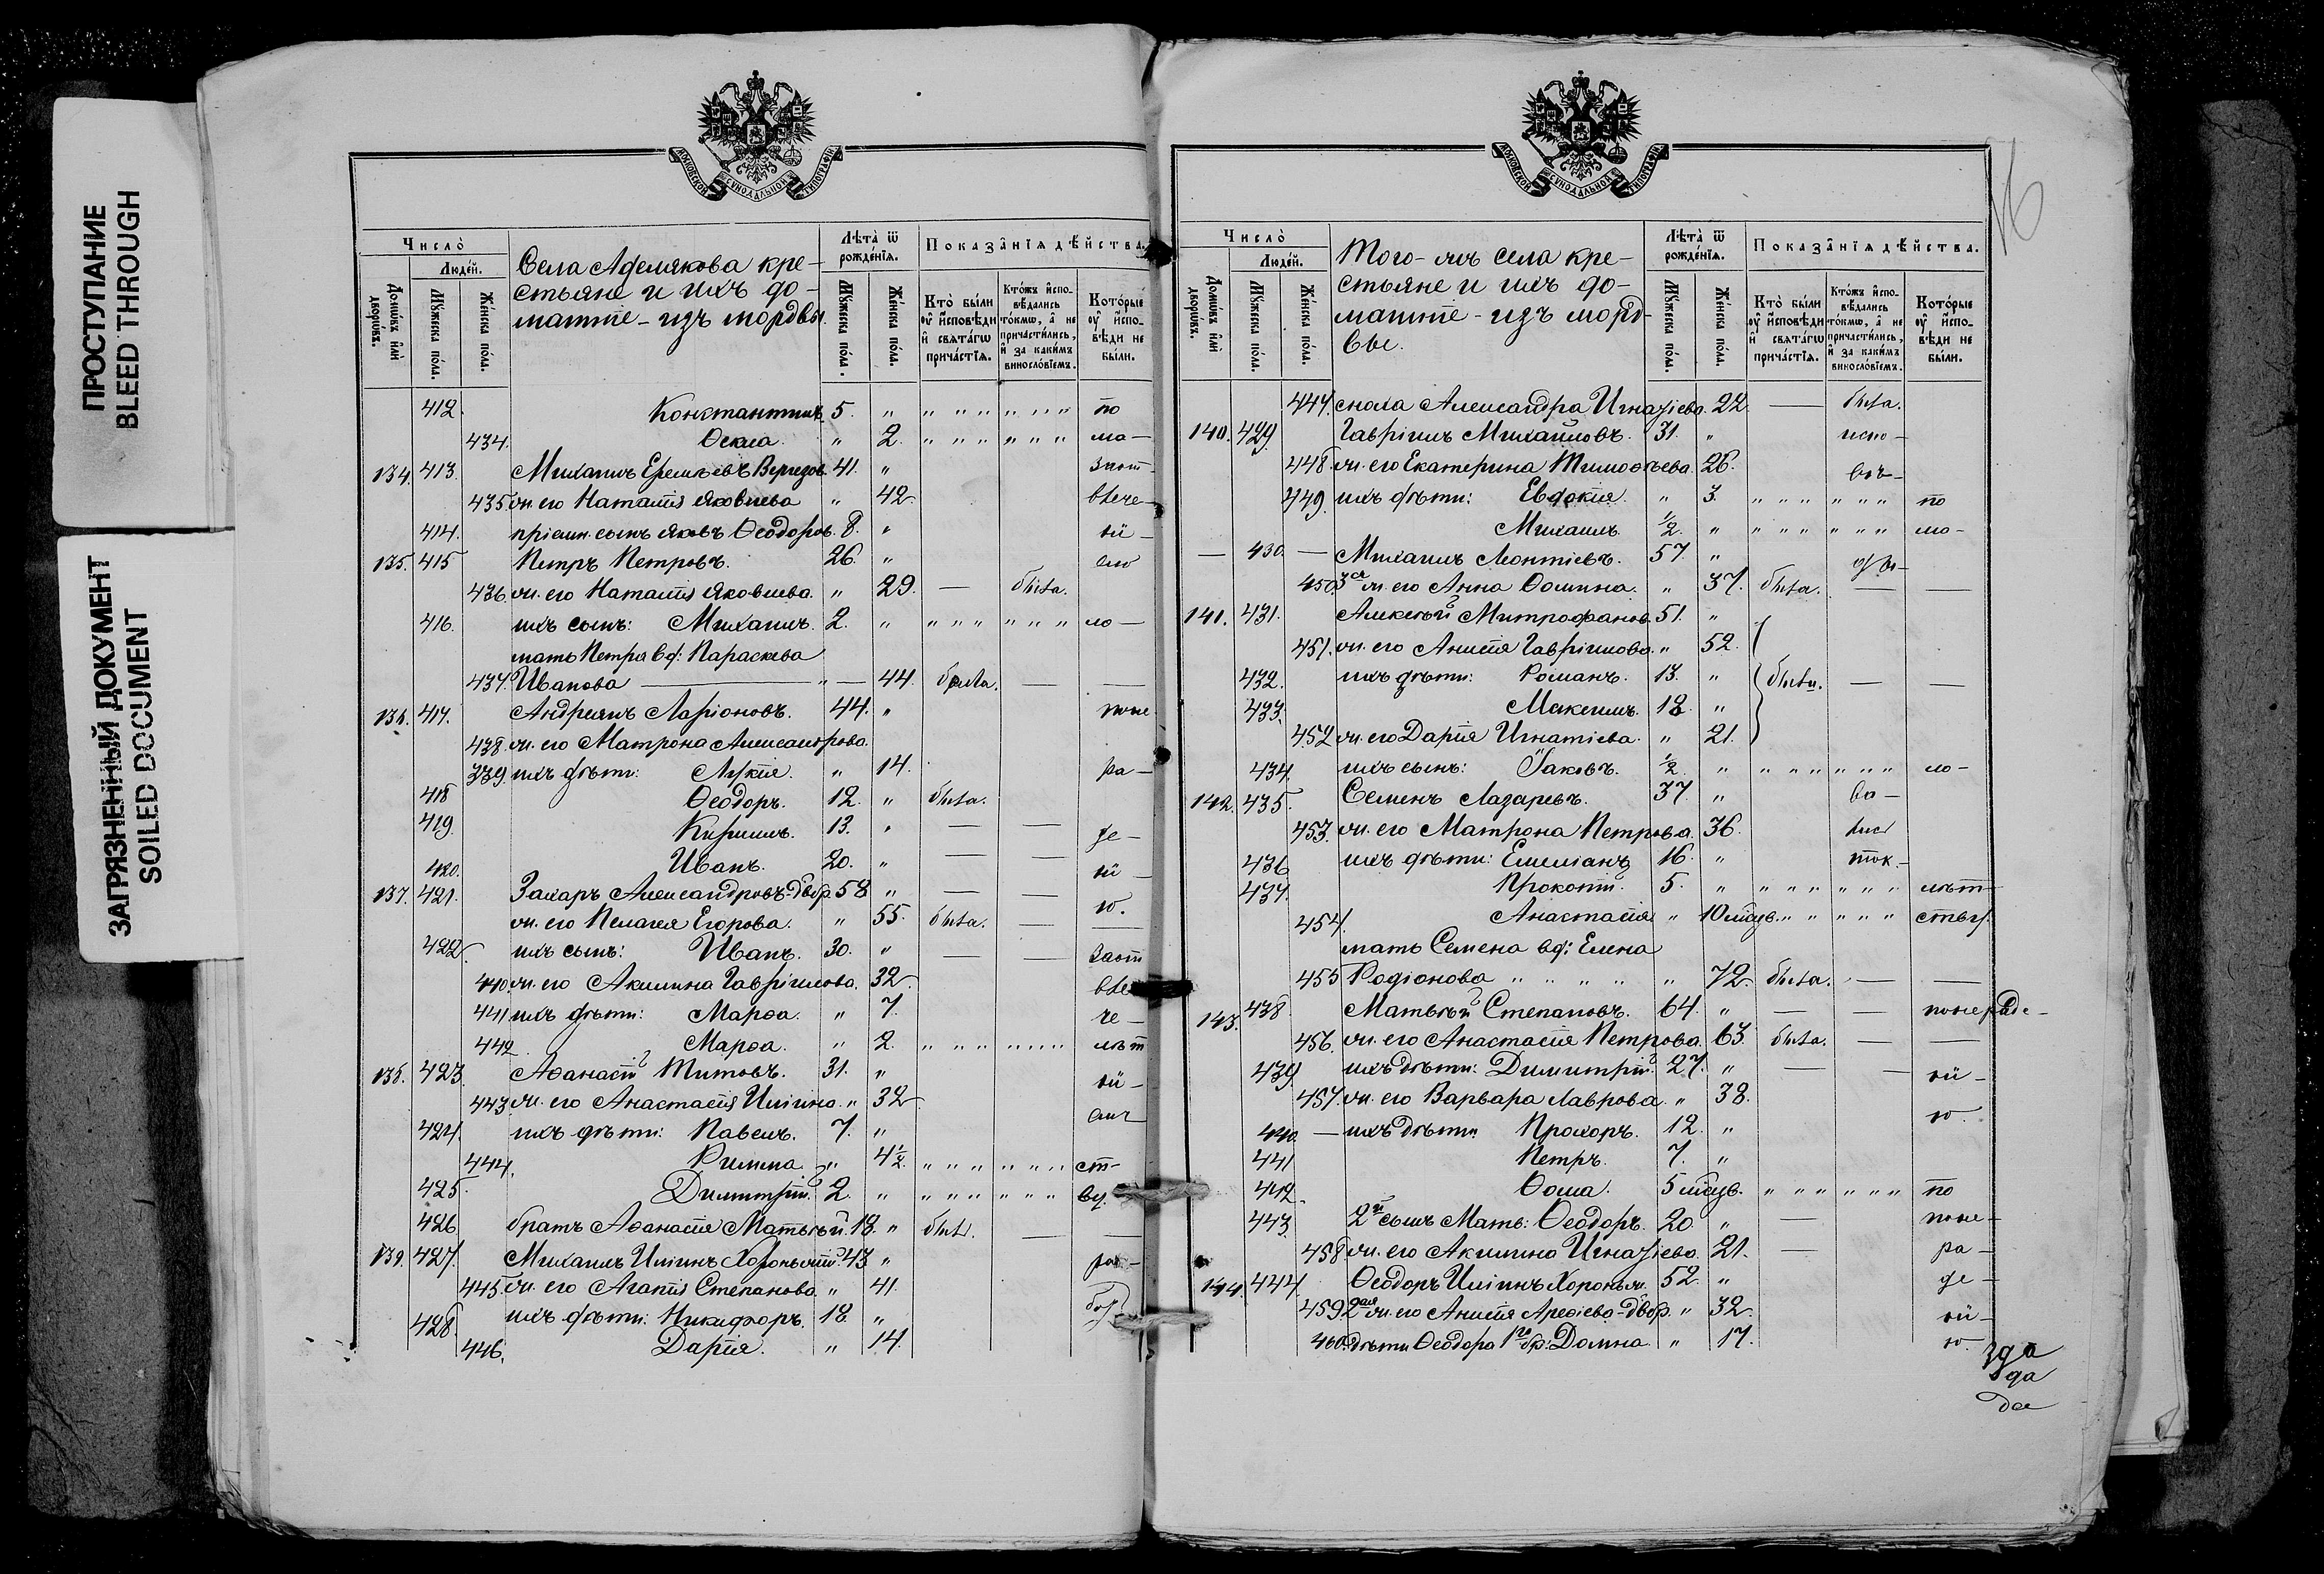 ПРОСТУПАНИЕ
BLEED THROUGH
ЗАГРЯЗНЕННЫЙ ДОКУМЕНТ
SOILED DOCUMENT
МОСКОВСКОЙ СѴНОДАЛЬНОЙ ТИПОГРАФІИ
Число̀
Людей.
Домѡвъ илѝ дворѡвъ.
Мꙋжеска пола.
Женска пола.
Села Аделякова кре-
стьяне и ихъ до-
машніе - изъ мордвы.
Лѣта̀ ѿ рожденїѧ.
Мꙋжеска пола.
Женска пола.
Показанїѧ дѣйства.
Кто̀ были ᲂу҆ исповѣди и свѧтагѡ причастїѧ.
Ктожъ исповѣдались токмѡ, а не причастились, и за какимъ винословїемъ.
Которые ᲂу҆ исповѣди не были.
412. Константинъ 5. " " " " " " " по
434. Ѳекла. " 2. " " " " " " ма-
134. 413. Михаилъ Еремѣевъ 41. "
435. ж. его Наталія Яковлева " 42.
414. пріемн. сынъ Яковъ Ѳеодоров. 8. "
135. 415 Петръ Петровъ. 26. "
436. ж. его Наталія Яковлева. " 29. — была.
416. ихъ сынъ: Михаилъ. 2. " " " " " " " ло-
мать Петра вд: Параскева
437. Иванова " — 44. была. — —
136. 417. Андреянъ Ларіоновъ. 44. "
438. ж. его Матрона Александрова.
339. ихъ дѣти: Лукія. " 14. ра-
418 Ѳеодоръ. 12. "
419. Кириллъ. 13. " — — де-
420. Иванъ. 20. " — — ні-
137. 421. Захаръ Александровъ-двор. 58 " — — ю.
ж. его Пелагея Егорова. " 55. была. — —
422. ихъ сынъ: Иванъ. 30. " — —
440. ж. его Акилина Гавріилова. 32.
441 ихъ дѣти: Марѳа. " 7. че-
442. Марѳа. " 2. " " " " " " лѣт
138. 423. Аѳанасій Титовъ. 31. "
443. ж. его Анастасія Иліина. " 32
424. ихъ дѣти: Павелъ. 7. "
444. Римма. " 4½. " " " " " " ст-
425. Димитрій. 2. " " " " " " " ву.
426. братъ Аѳанасія Матвѣй. 18. " былъ. — —
139. 427. Михаилъ Иліинъ 43 "
445. ж. его Агапія Степанова. " 41.
428. ихъ дѣти: Никифоръ. 18. "
446. Дарія. " 14.
16
Число̀
Людей.
Домѡвъ илѝ дворѡвъ.
Мꙋжеска пола.
Женска пола.
Того-жъ села кре-
стьяне и ихъ до-
машніе - изъ морд-
вы.
Лѣта̀ ѿ рожденїѧ.
Мꙋжеска пола.
Женска пола.
Показанїѧ дѣйства.
Кто̀ были ᲂу҆ исповѣди и свѧтагѡ причастїѧ.
Ктожъ исповѣдались токмѡ, а не причастились, и за какимъ винословїемъ.
Которые ᲂу҆ исповѣди не были.
447. сноха Александра Игнатіева. 22. — была.
140. 429. Гавріилъ Михайловъ. 31. " испо-
448. ж. его Екатерина Тимоѳѣева. 26.
449. ихъ дѣти: Евдокія. " 3. " " " " " " по
Михаилъ. ½. " " " " " " " ма-
— 430. — Михаилъ Леонтіевъ. 57. "
450. 3ая ж. его Анна Ѳомина. " 37. была. — —
141. 431. Алексѣй Митрофанов. 51. "
451. ж. его Анисія Гавріилова. " 52.
432. ихъ дѣти: Романъ. 13. " были. — —
433. Максимъ. 18. "
452. ж. его Дарія Игнатіева. " 21.
434. ихъ сынъ: Іаковъ. ½. " " " " " " " ло-
142. 435. Семенъ Лазаревъ. 37. "
453. ж. его Матрона Петрова. 36.
436. ихъ дѣти: Емиліанъ 16. " ток.
437. Прокопій. 5. " " " " " " " лѣт-
454. Анастасія " 10 мѣсяц. " " " " " ству.
мать Семена вд: Елена
455 Родіонова " " " " " 72. была. — —
143. 438. Матвѣй Степановъ. 64. " — — нераде-
456. ж. его Анастасія Петрова. 63. была. — —
439. ихъ дѣти: Димитрій. 27. " — — ні-
457. ж. его Варвара Лаврова. " 38. ю.
440. — ихъ дѣти: Прохоръ. 12. "
441 Петръ. 7. "
442. Ѳома. 5 мѣсяц. " " " " " " по
443. 2й сынъ Матв: Ѳеодоръ. 20. " —
458. ж. его Акилина Игнатіева. 21. — ра-
144. 444. Ѳеодоръ Иліинъ 52. " де-
459. 2ая ж. его Анисія Ареѳіева-двор. " 32. ні-
460. дѣти Ѳеодора 1го бр: Домна. " 17. ю.